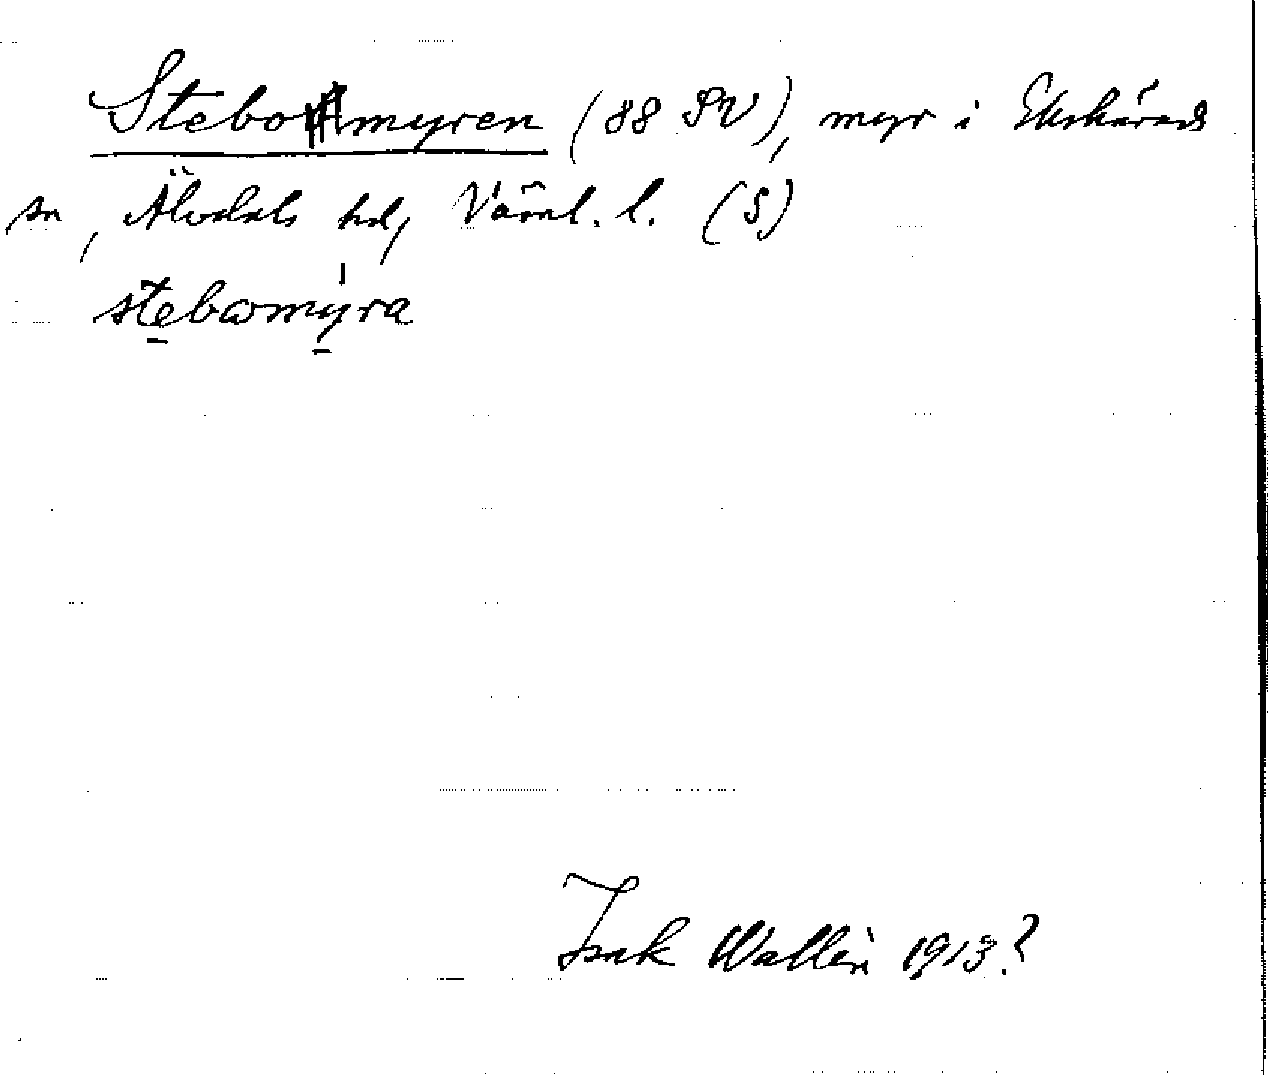 Stebomyren (88 SV), myr i Ekshärads
sn, Älvdals hd, Värml. l. (S)
stebωmyra
Isak Wallin 1913?